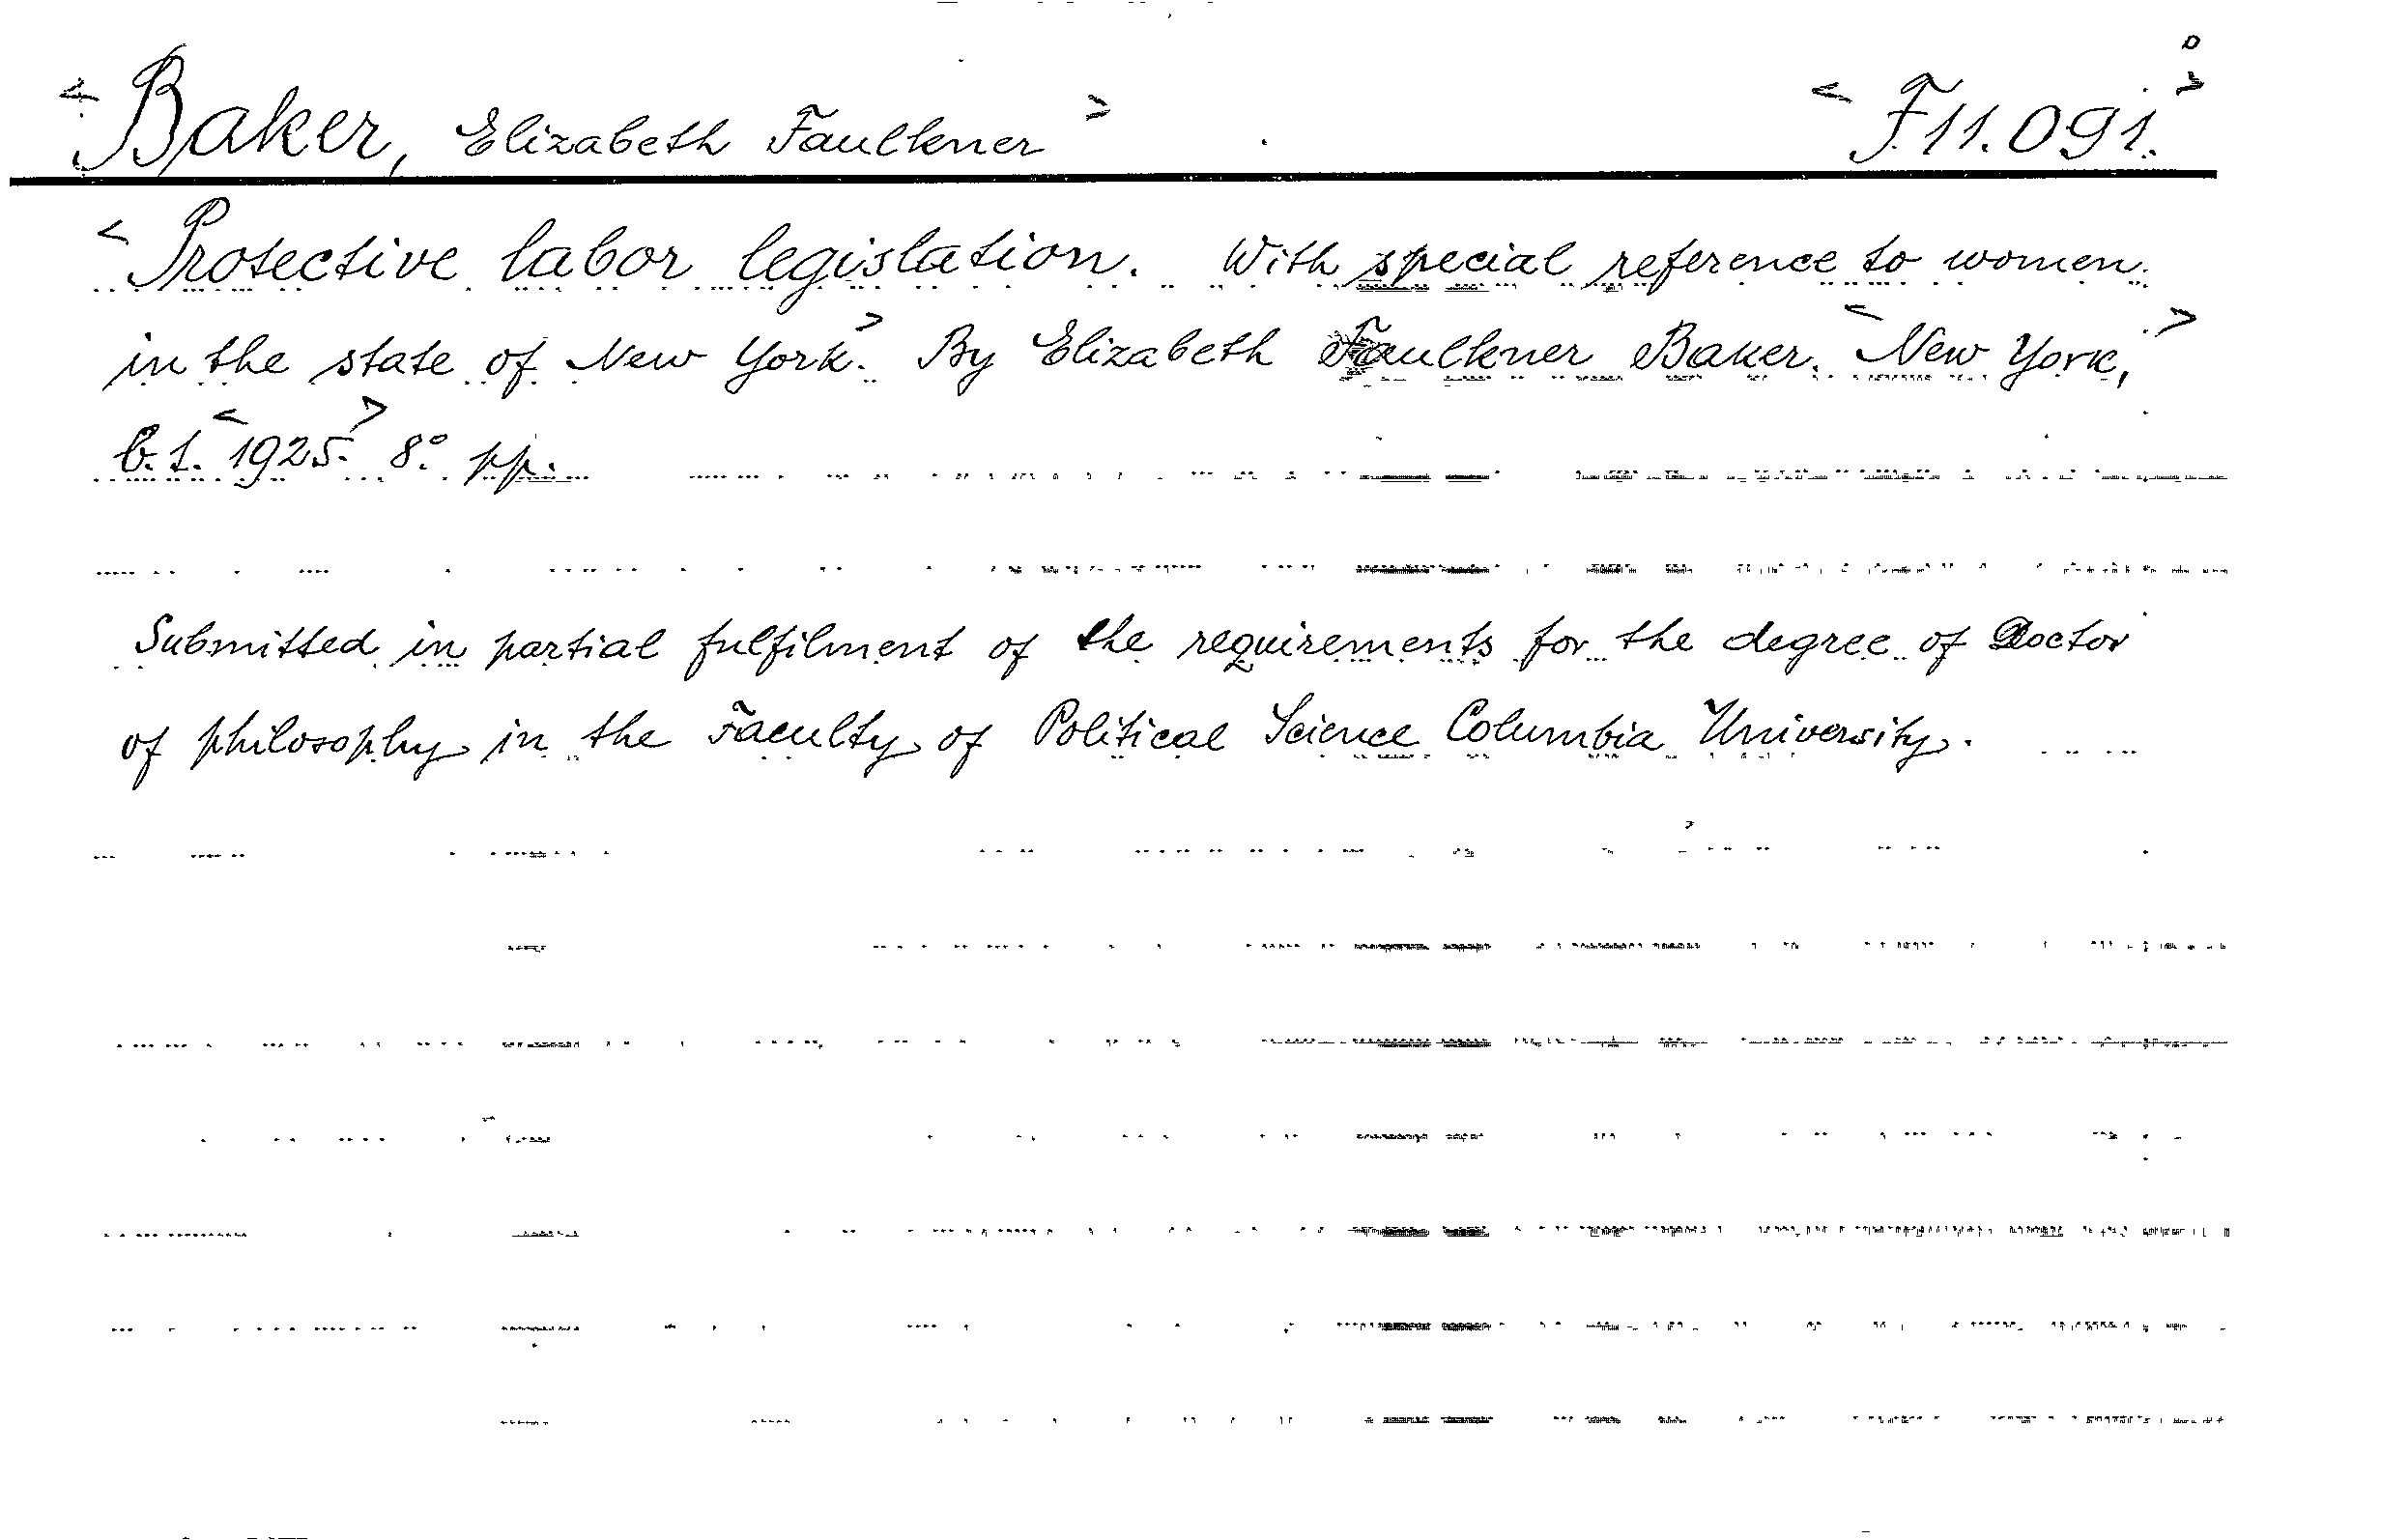 <Baker, Elizabeth Faulkner> <F11.091.>
<Protective labor legislation. With special reference to women
in the state of New York.> By Elizabeth Faulkner Baker. <New York,>
<1925.> 8° pp.
Submitted in partial fulfilment of the requirements for the degree of Doctor
of philosophy in the Faculty of Political Science Columbia University.